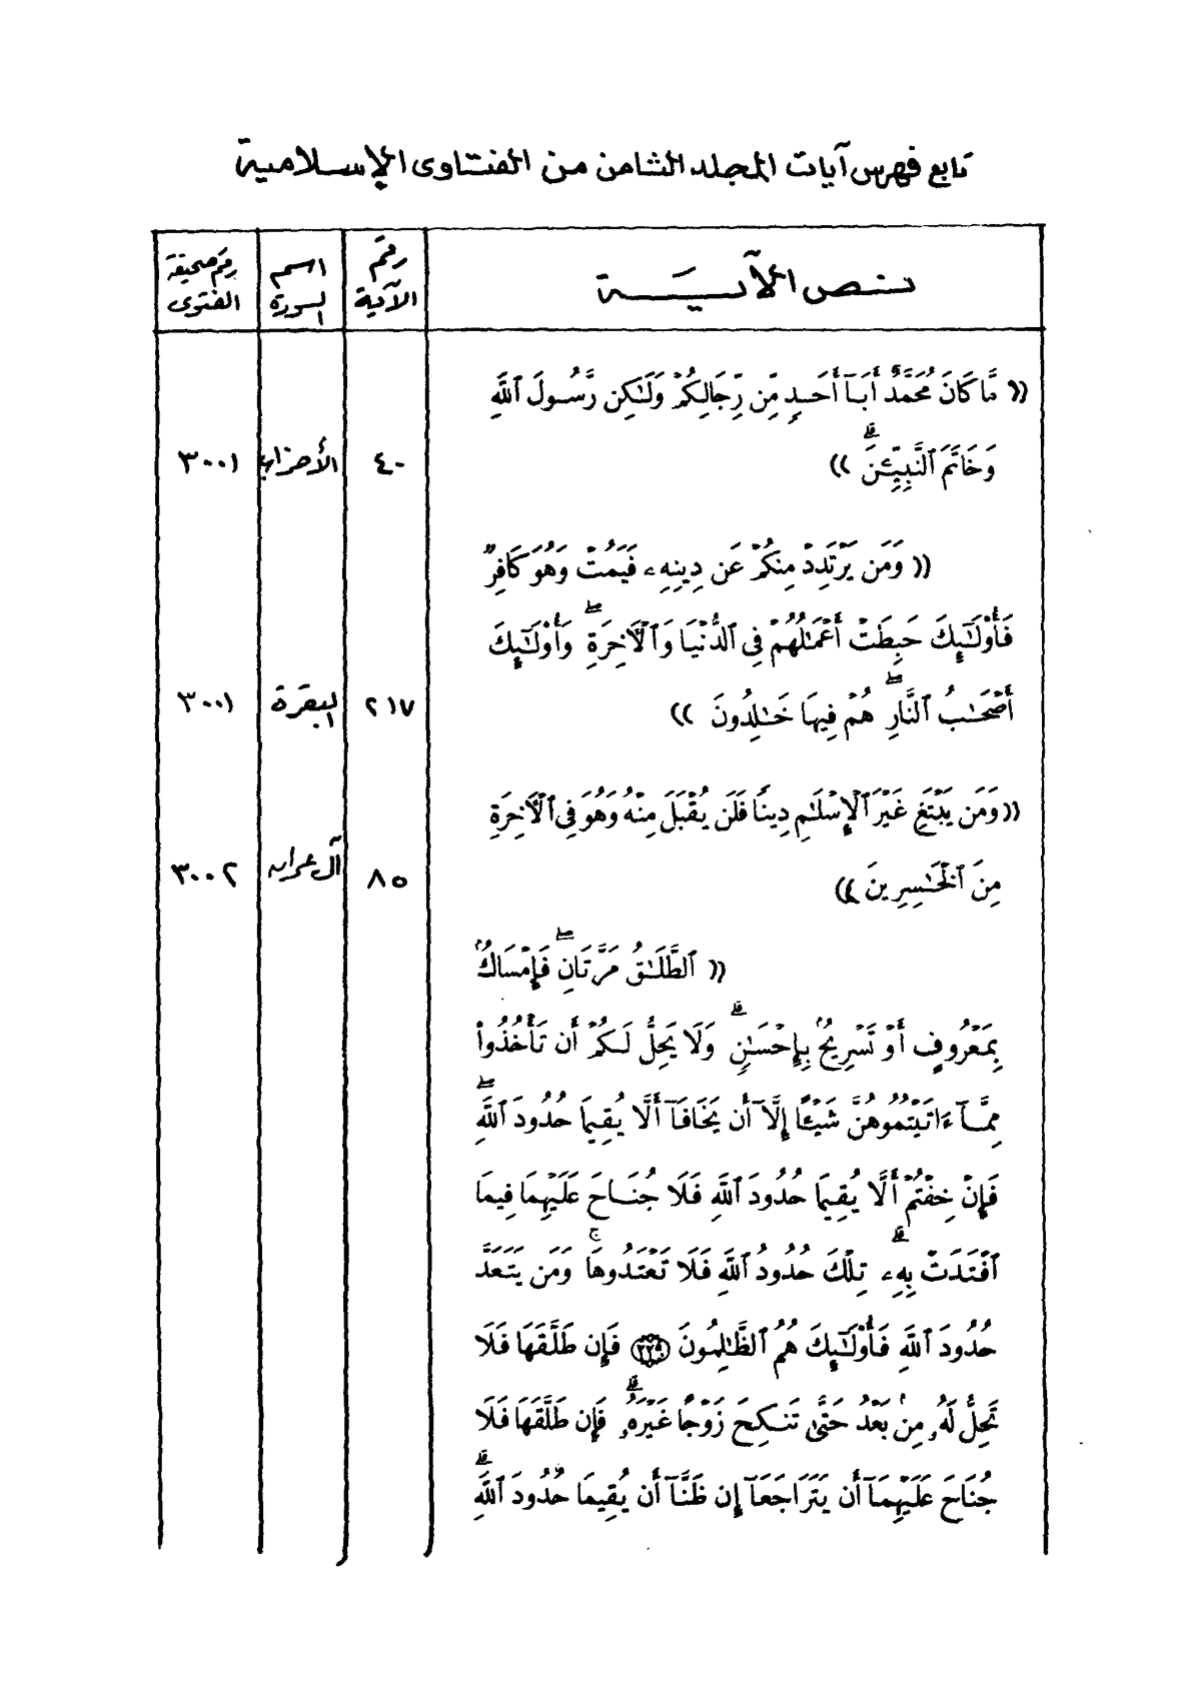 تابع فهرس آيات المجلد الثامن من الفتاوى الإسلامية
نص الآية
رقم الآية
اسم السورة
رقم صحيفة الفتوى
(( مَّا كَانَ مُحَمَّدٌ أَبَآ أَحَدٍ مِّن رِّجَالِكُمْ وَلَٰكِن رَّسُولَ ٱللَّهِ
وَخَاتَمَ ٱلنَّبِيِّـۧنَ ۗ )) ٤٠ الأحزاب ٣٠٠١
(( وَمَن يَرْتَدِدْ مِنكُمْ عَن دِينِهِۦ فَيَمُتْ وَهُوَ كَافِرٌ
فَأُو۟لَٰٓئِكَ حَبِطَتْ أَعْمَٰلُهُمْ فِى ٱلدُّنْيَا وَٱلْـَٔاخِرَةِ ۖ وَأُو۟لَٰٓئِكَ
أَصْحَٰبُ ٱلنَّارِ ۖ هُمْ فِيهَا خَٰلِدُونَ )) ٢١٧ البقرة ٣٠٠١
(( وَمَن يَبْتَغِ غَيْرَ ٱلْإِسْلَٰمِ دِينًا فَلَن يُقْبَلَ مِنْهُ وَهُوَ فِى ٱلْـَٔاخِرَةِ
مِنَ ٱلْخَٰسِرِينَ )) ٨٥ آل عمران ٣٠٠٢
(( ٱلطَّلَٰقُ مَرَّتَانِ ۖ فَإِمْسَاكٌۢ
بِمَعْرُوفٍ أَوْ تَسْرِيحٌۢ بِإِحْسَٰنٍ ۗ وَلَا يَحِلُّ لَكُمْ أَن تَأْخُذُوا۟
مِمَّآ ءَاتَيْتُمُوهُنَّ شَيْـًٔا إِلَّآ أَن يَخَافَآ أَلَّا يُقِيمَا حُدُودَ ٱللَّهِ ۖ
فَإِنْ خِفْتُمْ أَلَّا يُقِيمَا حُدُودَ ٱللَّهِ فَلَا جُنَاحَ عَلَيْهِمَا فِيمَا
ٱفْتَدَتْ بِهِۦ ۗ تِلْكَ حُدُودُ ٱللَّهِ فَلَا تَعْتَدُوهَا ۚ وَمَن يَتَعَدَّ
حُدُودَ ٱللَّهِ فَأُو۟لَٰٓئِكَ هُمُ ٱلظَّٰلِمُونَ ٢٢٩ فَإِن طَلَّقَهَا فَلَا
تَحِلُّ لَهُۥ مِنۢ بَعْدُ حَتَّىٰ تَنكِحَ زَوْجًا غَيْرَهُۥ ۗ فَإِن طَلَّقَهَا فَلَا
جُنَاحَ عَلَيْهِمَآ أَن يَتَرَاجَعَآ إِن ظَنَّآ أَن يُقِيمَا حُدُودَ ٱللَّهِ ۗ